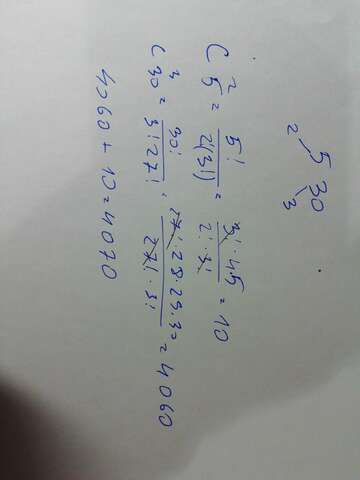 5 30
2 3
C²₅ = 5! / 2!(3!) = 3!·4·5 / 2!·3! = 10
C³₃₀ = 30! / 3!27! = 27!·28·29·30 / 27!·3! = 4060
4060 + 10 = 4070